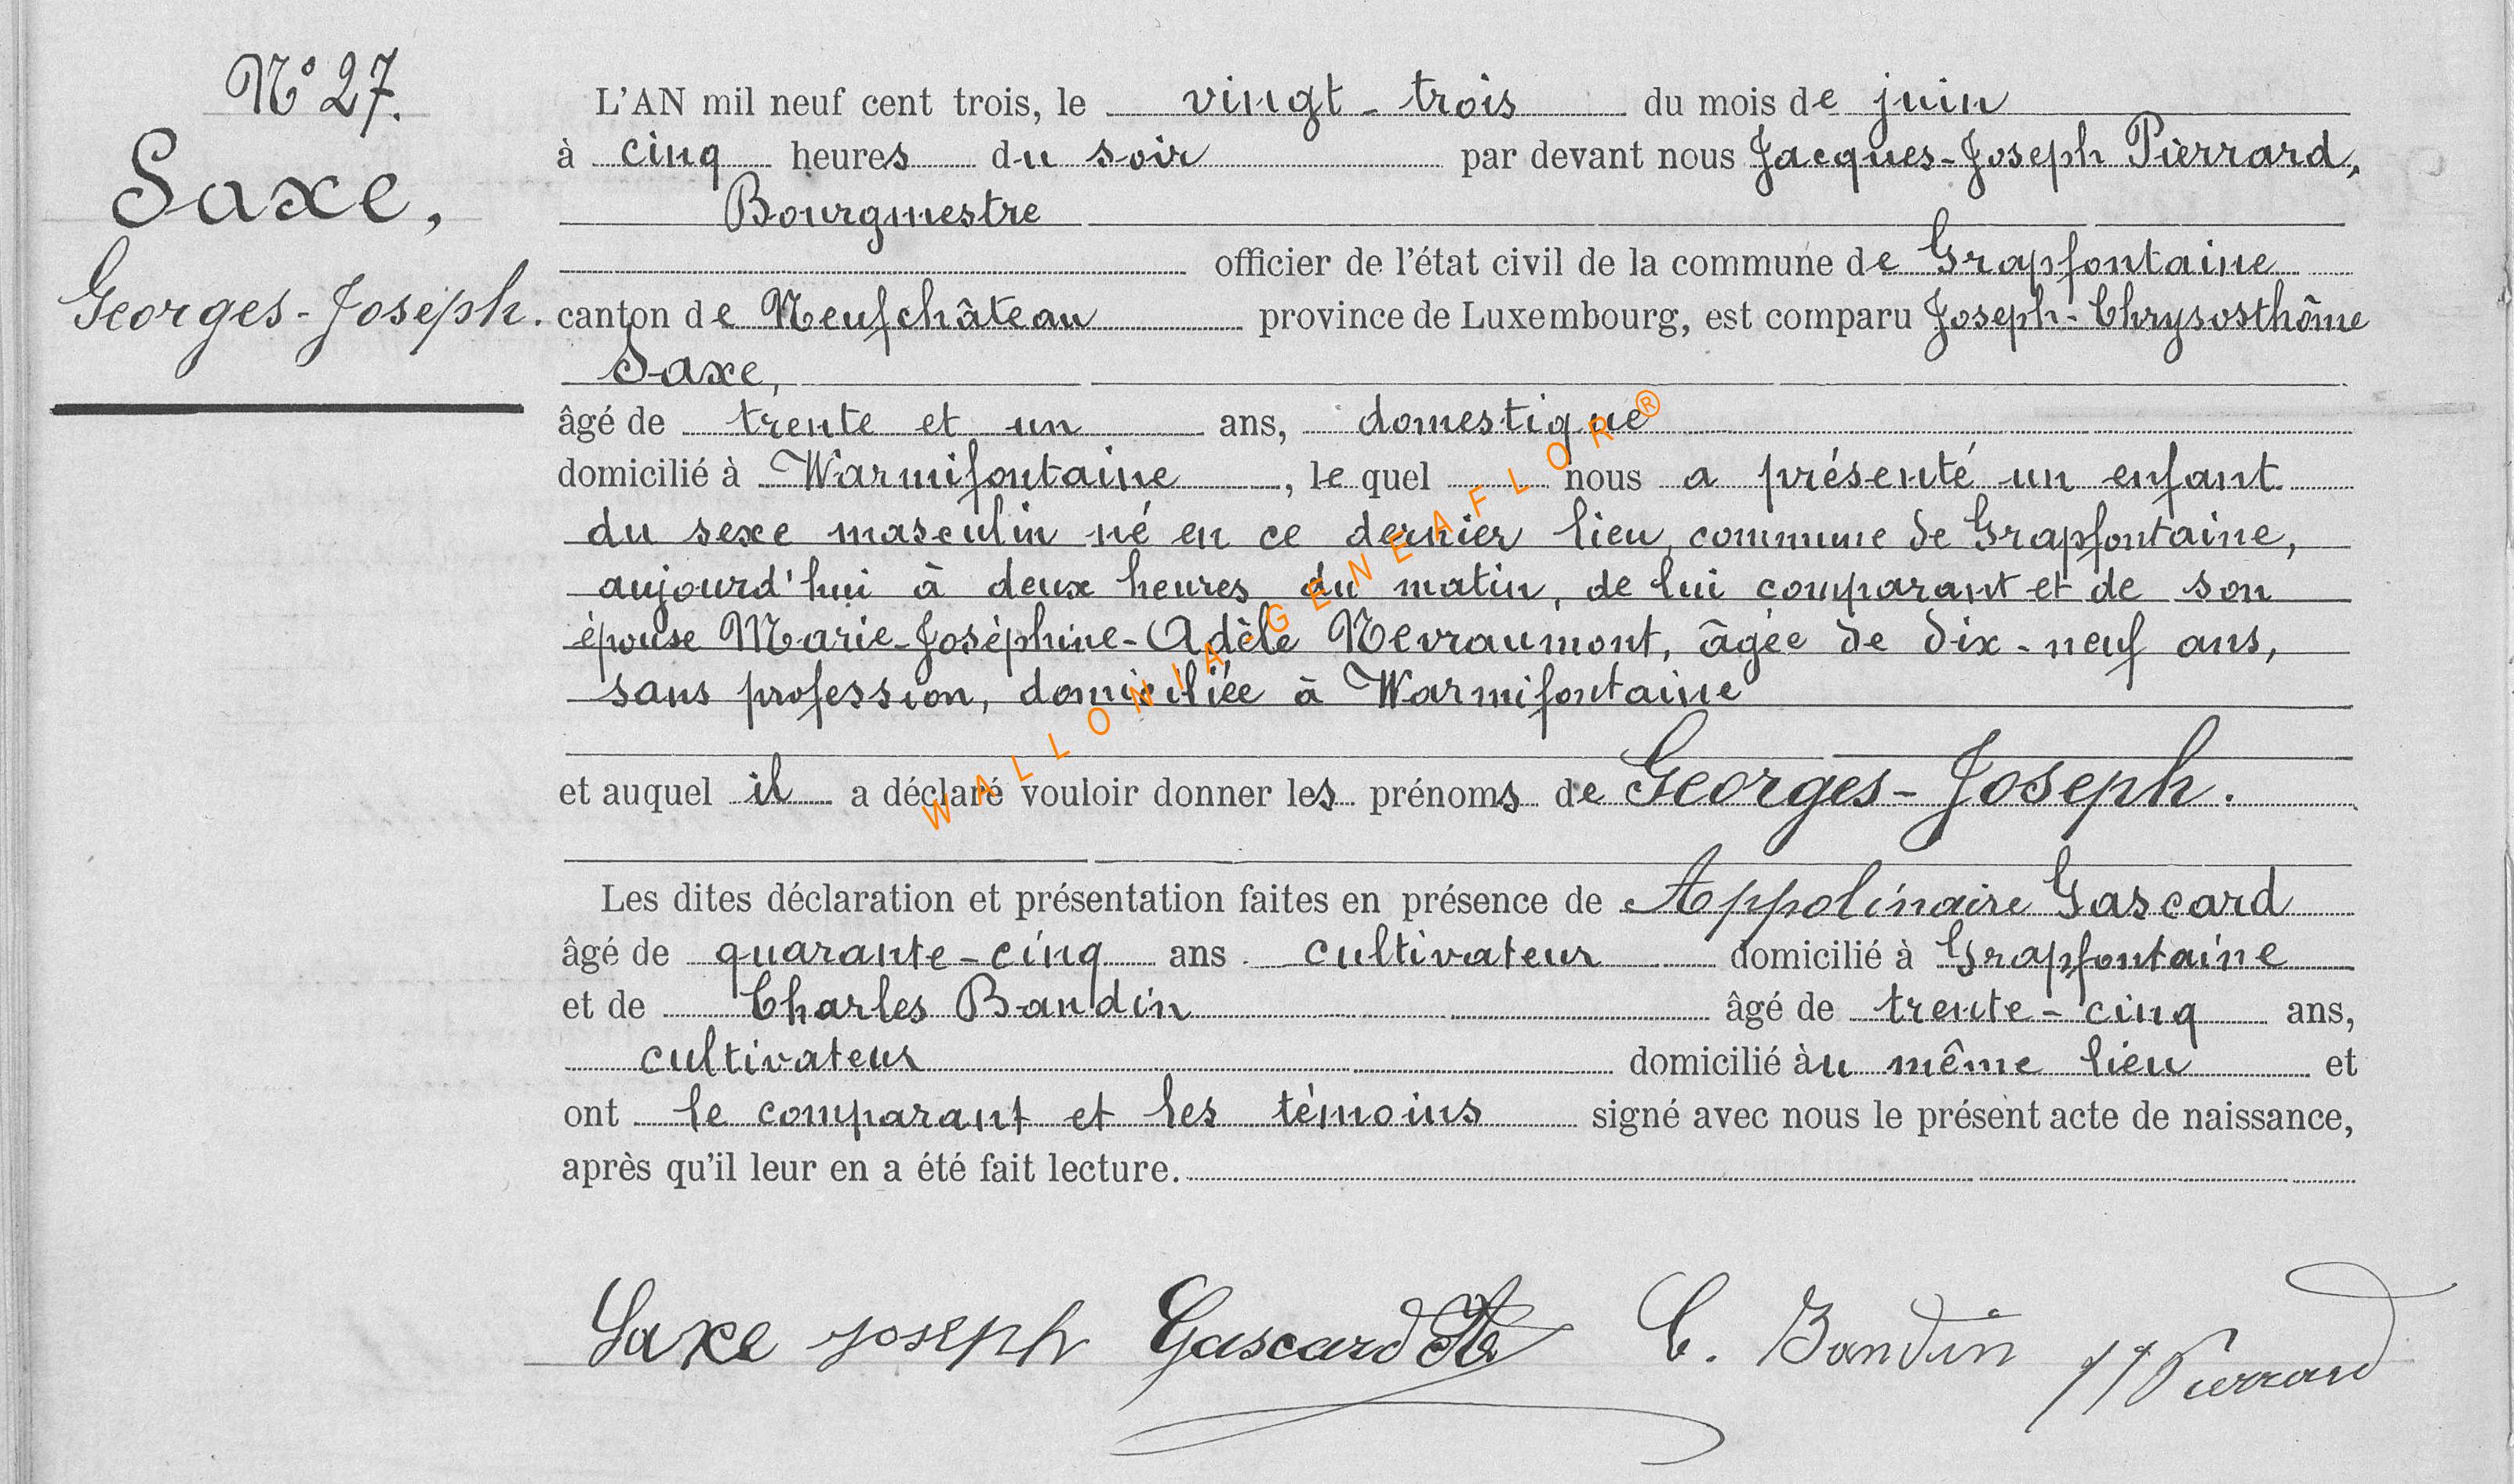 N° 27.
Saxe,
Georges-Joseph.
L'AN mil neuf cent trois, le vingt-trois du mois de juin
à cinq heures du soir par devant nous Jacques-Joseph Pierrard,
Bourgmestre
officier de l'état civil de la commune de Grapfontaine
canton de Neufchâteau province de Luxembourg, est comparu Joseph-Chrysosthôme
Saxe,
âgé de trente et un ans, domestique
domicilié à Warmifontaine, le quel nous a présenté un enfant
du sexe masculin né en ce dernier lieu, commune de Grapfontaine,
aujourd'hui à deux heures du matin, de lui comparant et de son
épouse Marie-Joséphine-Adèle Nevraumont, âgée de dix-neuf ans,
sans profession, domiciliée à Warmifontaine
et auquel il a déclaré vouloir donner les prénoms de Georges-Joseph.
Les dites déclaration et présentation faites en présence de Appolinaire Gascard
âgé de quarante-cinq ans cultivateur domicilié à Grapfontaine
et de Charles Bandin âgé de trente-cinq ans,
cultivateur domicilié àu même lieu et
ont le comparant et les témoins signé avec nous le présent acte de naissance,
après qu'il leur en a été fait lecture.
Saxe joseph Gascard C. Bandin JJ Pierrard
WALLONIA GENEAFLOR®